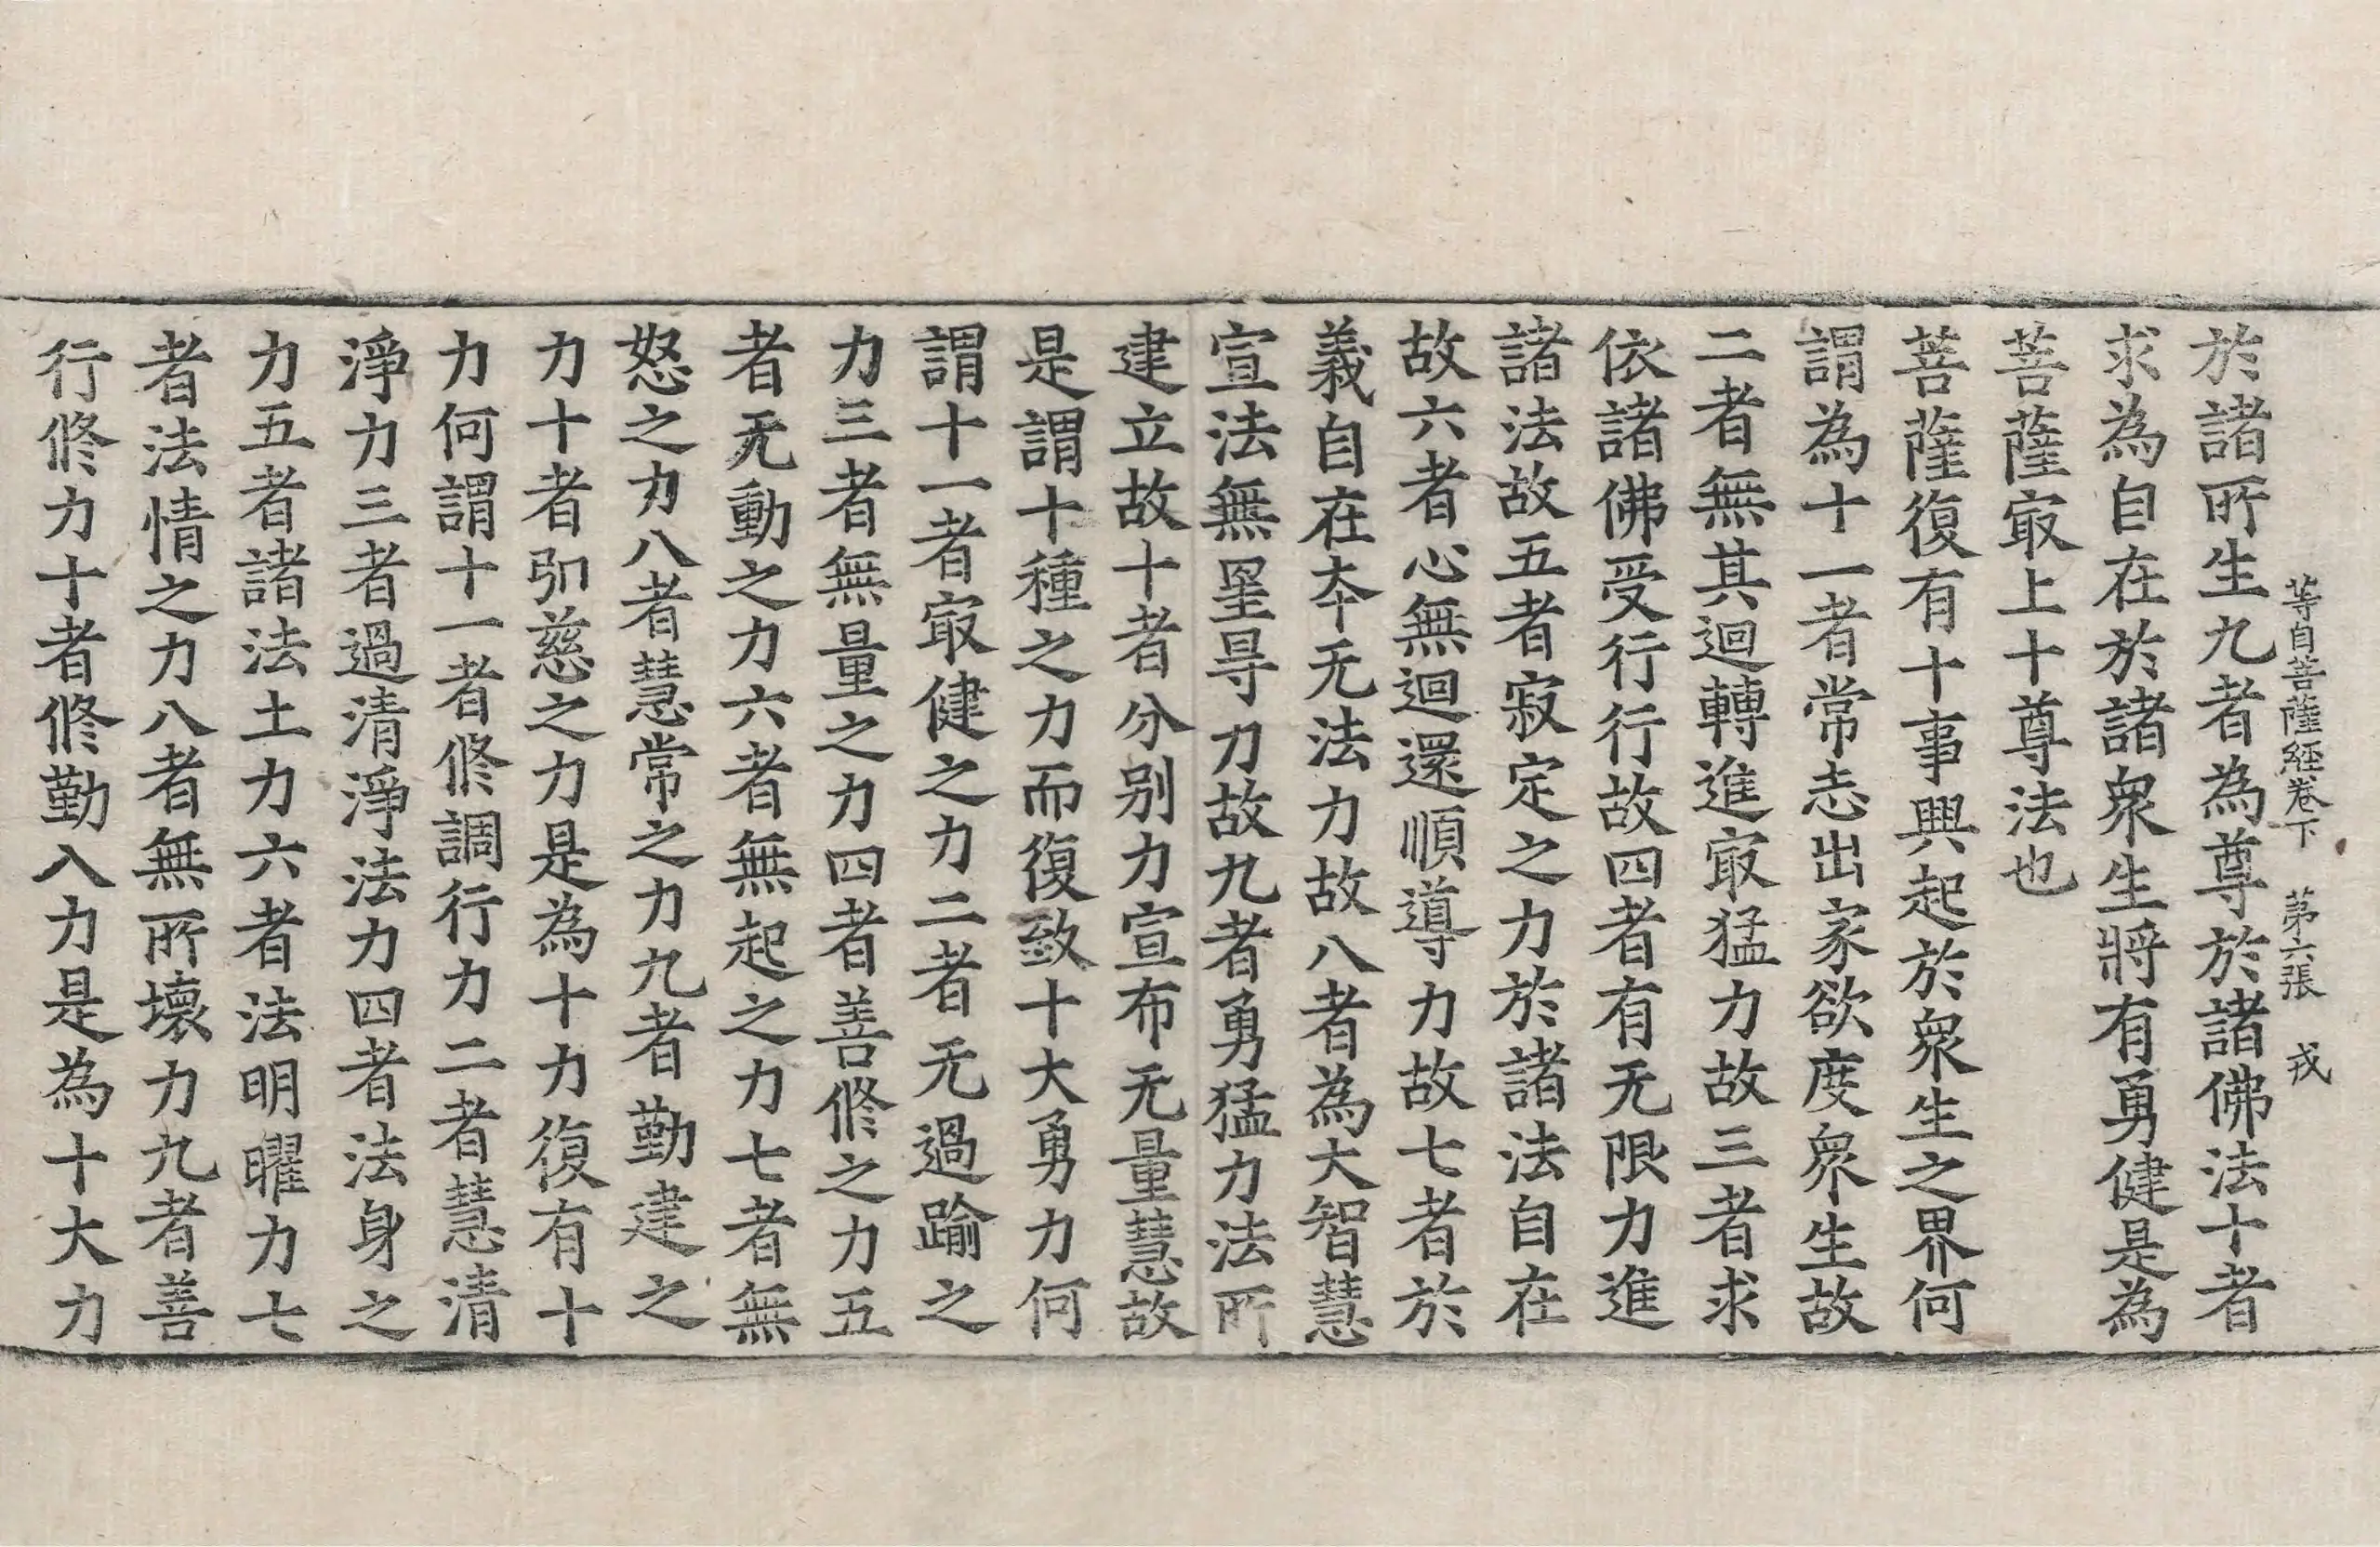 等自菩薩經卷下　第六張　戎
於諸所生九者為尊於諸佛法十者
求為自在於諸衆生將有勇健是為
菩薩㝡上十尊法也
菩薩復有十事興起於衆生之界何
謂為十一者常志出家欲度衆生故
二者無其迴轉進㝡猛力故三者求
依諸佛受行行故四者有无限力進
諸法故五者寂定之力於諸法自在
故六者心無迴還順導力故七者於
義自在夲无法力故八者為大智慧
宣法無罣㝵力故九者勇猛力法所
建立故十者分別力宣布无量慧故
是謂十種之力而復致十大勇力何
謂十一者㝡健之力二者无過踰之
力三者無量之力四者善修之力五
者无動之力六者無起之力七者無
怒之力八者慧常之力九者勤建之
力十者弘慈之力是為十力復有十
力何謂十一者修調行力二者慧清
淨力三者過清淨法力四者法身之
力五者諸法土力六者法明曜力七
者法情之力八者無所壞力九者善
行修力十者修勤入力是為十大力